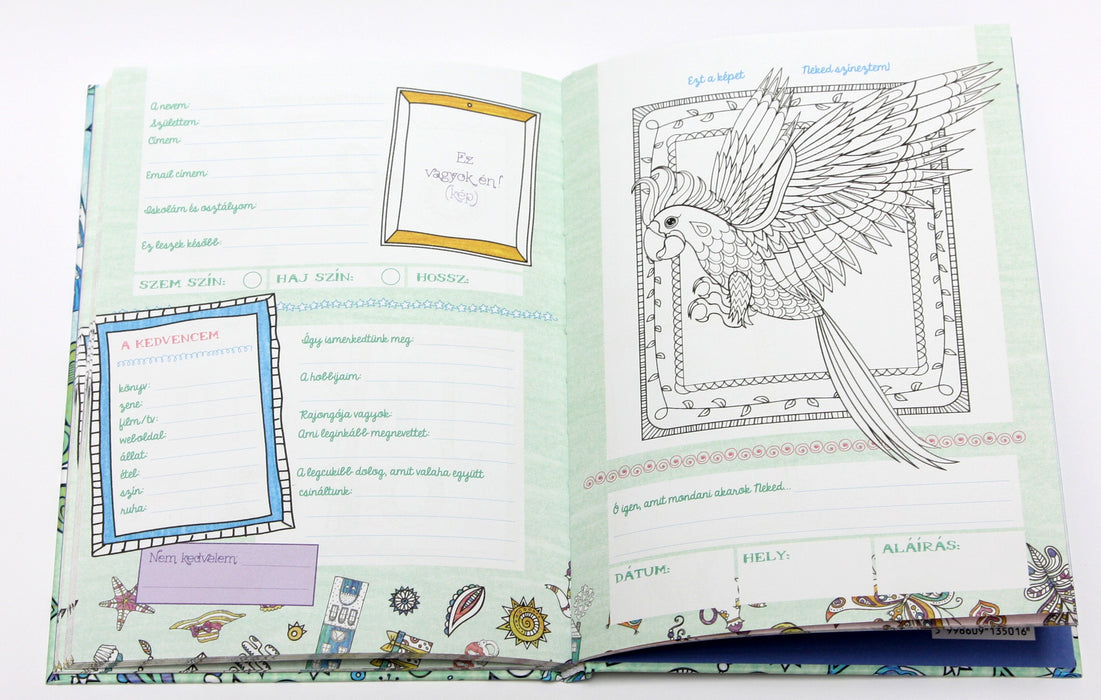 A nevem:
Születtem:
Címem:
Email címem:
Iskolám és osztályom:
Ez leszek később:
Ez
vagyok én!
(kép)
SZEM SZÍN:
HAJ SZÍN:
HOSSZ:
A KEDVENCEM
könyv:
zene:
film/tv:
weboldal:
állat:
étel:
szín:
ruha:
Nem kedvelem
Így ismerkedtünk meg:
A hobbijaim:
Rajongója vagyok:
Ami leginkább megnevettet:
A legcukibb dolog, amit valaha együtt
csináltunk:
Ezt a képet Neked színeztem!
Ó igen, amit mondani akarok Neked...
DÁTUM:
HELY:
ALÁÍRÁS:
5 998609 135016